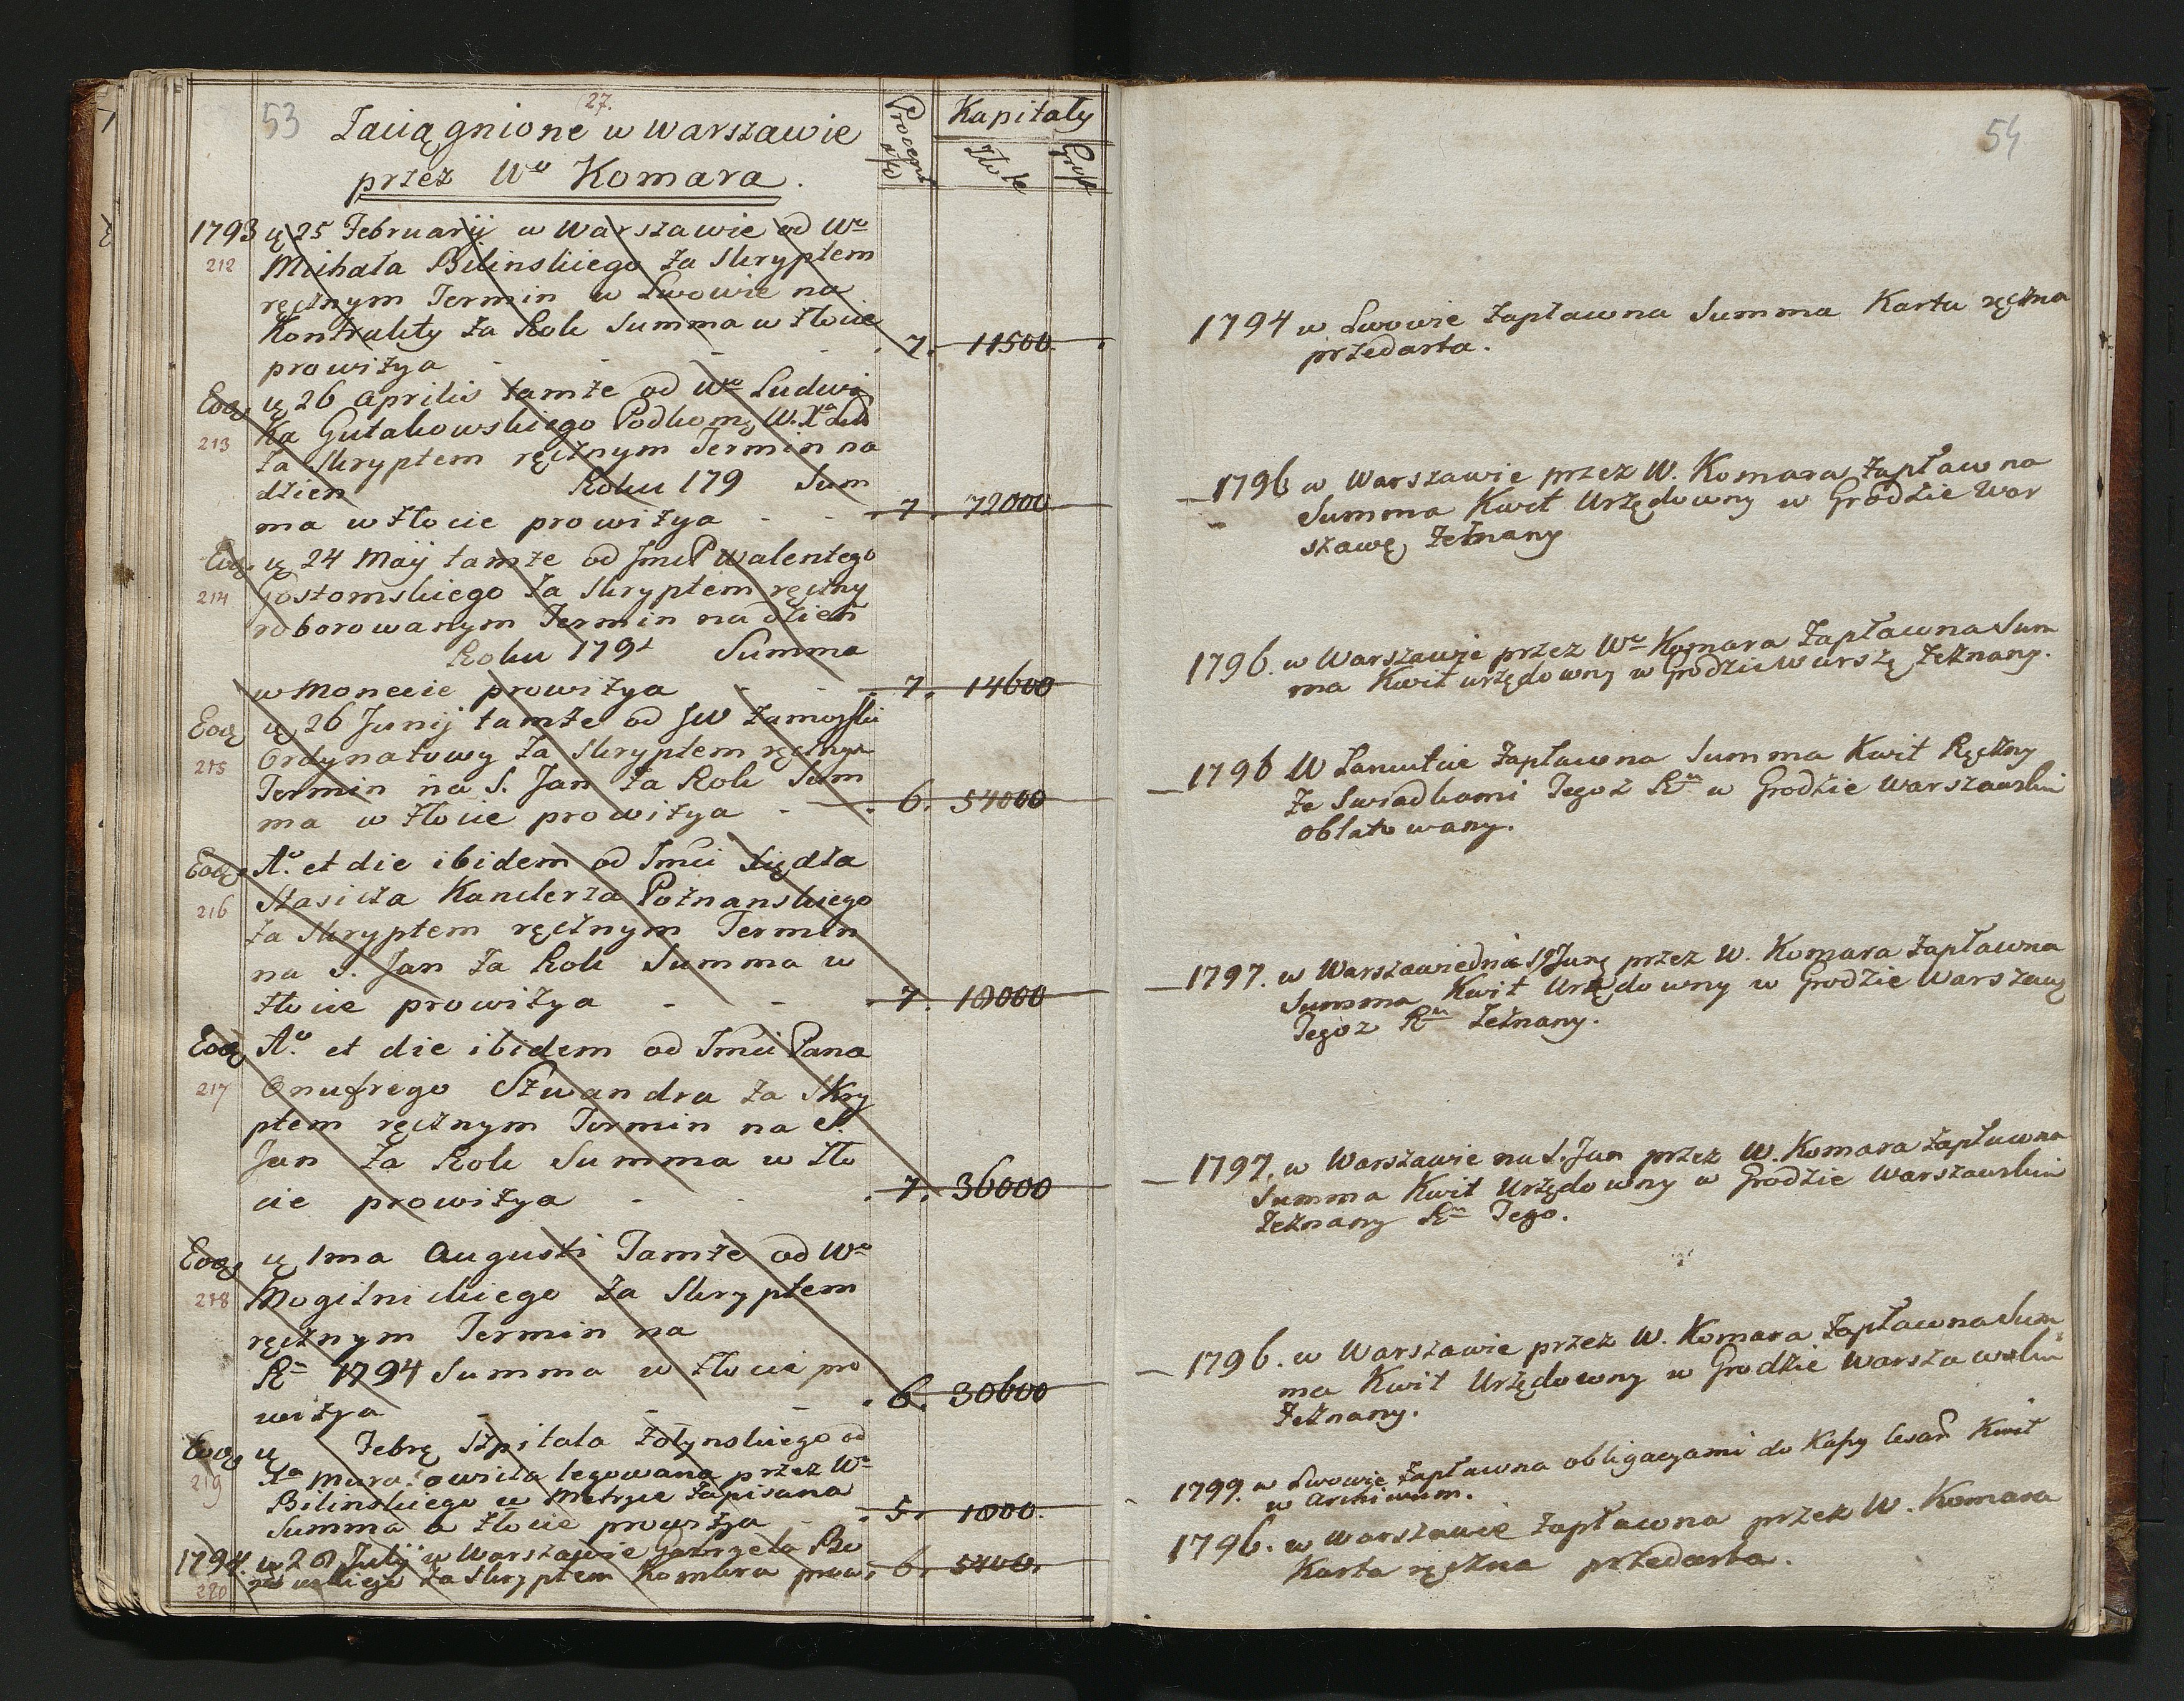 53
27.
Zaciągnione w Warszawie
przez Wo Komara.
Procent
Kapitały
Złote
1793 ą 25 Februarij w Warszawie od Wo
212 Michała Bilinskiego za Skryptem
ręcznym Termin w Lwowie na
Kontrakty za Rok Summa w złocie
prowizya - - - 7. 11500.
Eoą ą 26 Aprilis tamże od Wo Ludwi
213 Ka Gutakowskiego Podkomę W. Xa Litt
za Skryptem ręcznym Termin na
dzien Roku 179 Sum
ma w złocie prowizya - - 7. 72000
Eoą ą 24 Maij tamże od Jmć P Walentego
214 Gostomskiego za Skryptem ręczny
roborowanym Termin na dzień
Roku 1794 Summa
w Monecie prowizya - - 7. 14600
Eoą ą 26 Junij tamże od JW Zamoyski
215 Ordynatowy za Skryptem ręcznym
Termin na S. Jan za Rok Sum
ma w złocie prowizya - 6. 54000
Eoą Ao. et die ibidem od Jmći Xiędza
216 Stasicza Kanclerza Poznanskiego
za Skryptem ręcznym Termin
na S. Jan za Rok Summa w
złocie prowizya - - 7. 10000
Eoą Ao. et die ibidem od Jmći Pana
217 Onufrego Szwandra za Skry
ptem ręcznym Termin na S.
Jan za Rok Summa w zło
cie prowizya - - 7. 36000
Eoą ą 1ma Augusti Tamże od Wo
218 Mogilnickiego za Skryptem
ręcznym Termin na
Ru 1794 Summa w złocie pro
wizya - - - 6. 30600
Eoą ą Febrę Szpitala Zołynskiego od
219 legowana przez Wo
Bilinskiego w Metryce zapisana
Summa w złocie prowizya - 5. 1000.
1794. ą 26 Julij w Warszawie Gabryela
220 za Skryptem Komara prow. 6. 5400.
54
1794 w Lwowie zapławna Summa Karta ręczna
przedarta.
1796 w Warszawie przez W. Komara zapławna
Summa Kwit Urzędowny w Grodzie War
szawę zeznany
1796. w Warszawie przez Wo Komara zapławna Sum
ma Kwit urzędowny w Grodzie Warszę zeznany.
1796 W Łancutcie zapławna Summa Kwit Ręczny
ze Swiadkami Tegoż Ru w Grodzie Warszawskim
oblatowany.
1797. w Warszawie dnia 19 Junę przez W. Komara zapławna
Summa Kwit Urzędowny w Grodzie Warszawę
Tegoz Ru zeznany.
1797. w Warszawie na S. Jan przez W. Komara zapławna
Summa Kwit Urzędowny w Grodzie Warszawskim
zeznany Ru Tego.
1796. w Warszawie przez W. Komara zapławna Sum
ma Kwit Urzędowny w Grodzie Warszawskim
zeznany.
1799. w Lwowie zapławna obligacyami do Kasy Cesar Kwit
w Archiwum.
1796. w Warszawie zapławna przez W. Komara
Karta ręczna przedarta.